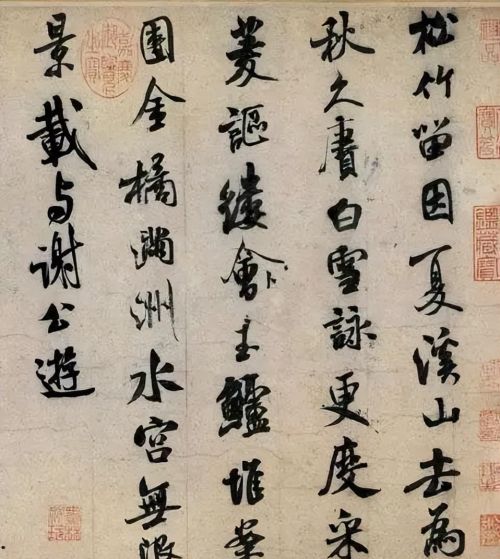 松竹留因夏溪山去為
秋久賡白雪詠更度采
菱謳縷會玉鱸堆案
團金橘滿洲水宮無限
景載与謝公遊